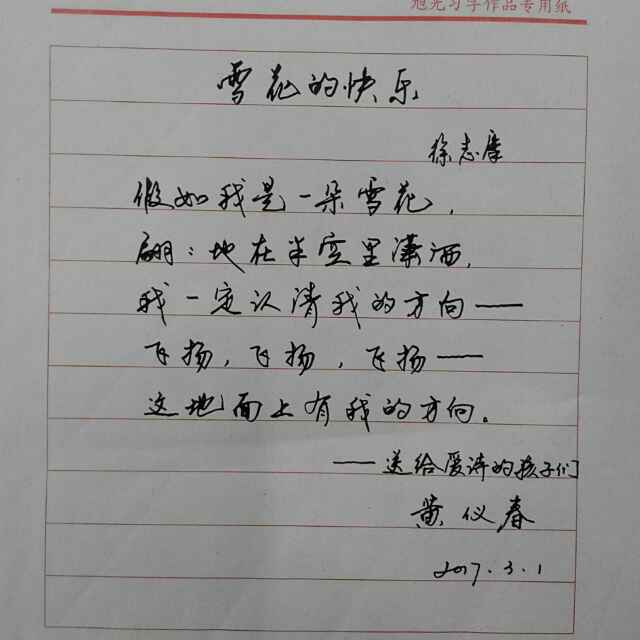 旭光习字作品专用纸
雪花的快乐
徐志摩
假如我是一朵雪花，
翩：地在半空里潇洒，
我一定认清我的方向——
飞扬，飞扬，飞扬——
这地面上有我的方向。
——送给爱诗的孩子们
黄仪春
2017.3.1